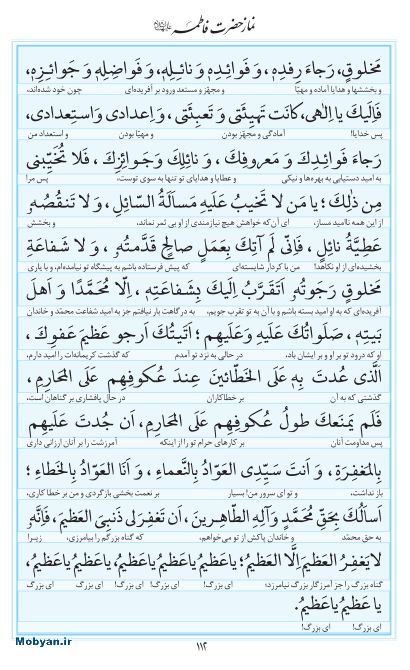 نماز حضرت فاطمه
مَخلوقٍ، رَجاءَ رِفدِهِ، وَ فَوائِدِهِ وَ نائِلِهِ، وَ فَواضِلِهِ وَ جَوائِزِهِ،
و بخششها و هدایا آماده و مهیّا و مجهّز و مستعد ورود بر آفریده‌ای چون خود شده‌اند،
فَاِلَيكَ يا اِلٰهى، كانَت تَهيِئَتى وَ تَعبِئَتى، وَ اِعدادى وَ استِعدادى،
پس خدایا! آمادگی و مجهّز بودن و مهیّا بودن و استعداد من
رَجاءَ فَوائِدِكَ وَ مَعروفِكَ، وَ نائِلِكَ وَ جَوائِزِكَ، فَلا تُخَيِّبنى
به امید دستیابی به بهره‌ها و نیکی و عطایا و هدایای تو تنها به سوی توست، پس مرا
مِن ذٰلِكَ؛ يا مَن لا تَخيبُ عَلَيهِ مَسأَلَةُ السّائِلِ، وَ لا تَنقُصُهُ
از این همه ناامید مساز، ای آن‌که خواهش هیچ نیازمندی از او بی ثمر نماند، و بخشش
عَطِيَّةُ نائِلٍ، فَاِنّى لَم آتِكَ بِعَمَلٍ صالِحٍ قَدَّمتُهُ، وَ لا شَفاعَةِ
بخشیده‌ای از او نکاهد! من با کردار شایسته‌ای که پیش فرستاده باشم به پیشگاه تو نیامده‌ام، و با یاری
مَخلوقٍ رَجَوتُهُ اَتَقَرَّبُ اِلَيكَ بِشَفاعَتِهِ، اِلّا مُحَمَّدًا وَ اَهلَ
آفریده‌ای که به او امید بسته باشم و با آن به تو تقرب جویم، به درگاهت بار نیافتم جز به امید شفاعت محمّد و خاندان
بَيتِهِ، صَلَواتُكَ عَلَيهِ وَ عَلَيهِم؛ اَتَيتُكَ اَرجو عَظيمَ عَفوِكَ،
او که درود تو بر او و بر ایشان باد، در حالی به نزد تو آمدم که گذشت کریمانه‌ات را امید دارم،
الَّذى عُدتَ بِهِ عَلَى الخَطّائينَ عِندَ عُكوفِهِم عَلَى المَحارِمِ،
گذشتی که به آن بر خطاکاران در حال پافشاری بر گناهان است،
فَلَم يَمنَعكَ طولُ عُكوفِهِم عَلَى المَحارِمِ، اَن جُدتَ عَلَيهِم
پس مداومت آنان بر کارهای حرام تو را از اینکه آمرزشت را بر آنان ارزانی داری
بِالمَغفِرَةِ، وَ اَنتَ سَيِّدِى العَوّادُ بِالنَّعماءِ، وَ اَنَا العَوّادُ بِالخَطاءِ؛
باز نداشت، و تو ای سرور من! بسیار بر نعمت بخشی بازگردی و من بر خطا کاری،
اَسأَلُكَ بِحَقِّ مُحَمَّدٍ وَ آلِهِ الطّاهِرينَ، اَن تَغفِرَ لى ذَنبِىَ العَظيمَ، فَاِنَّهُ
به حق محمّد و خاندان پاکش از تو می‌خواهم، که گناه بزرگم را بیامرزی، زیرا
لا يَغفِرُ العَظيمَ اِلَّا العَظيمُ؛ يا عَظيمُ يا عَظيمُ يا عَظيمُ يا عَظيمُ يا عَظيمُ،
گناه بزرگ را جز آمرزگار بزرگ نیامرزد؛ ای بزرگ ای بزرگ! ای بزرگ! ای بزرگ ای بزرگ
يا عَظيمُ يا عَظيمُ.
ای بزرگ! ای بزرگ!
۱۱۲
Mobyan.ir